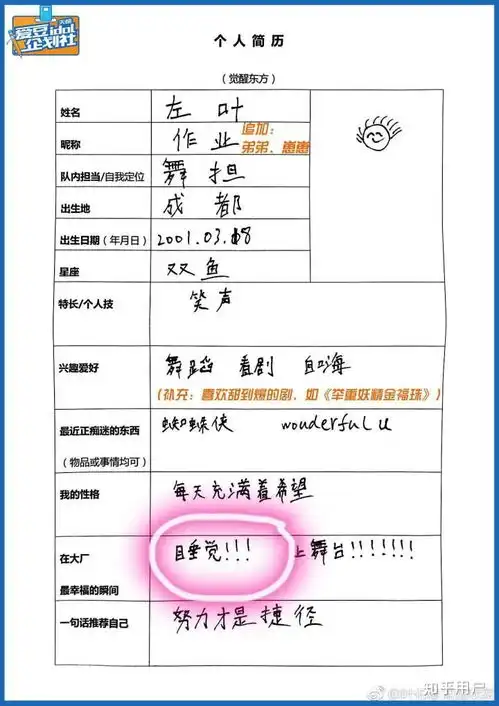 爱豆idol
企划社
个人简历
（觉醒东方）
姓名 左叶
昵称 作业 追加：
弟弟、崽崽
队内担当/自我定位 舞担
出生地 成都
出生日期（年月日） 2001.03.18
星座 双鱼
特长/个人技 笑声
兴趣爱好 舞蹈 看剧 自嗨
（补充：喜欢甜到爆的剧，如《举重妖精金福珠》）
最近正痴迷的东西 蜘蛛侠 wonderful U
（物品或事情均可）
我的性格 每天充满着希望
在大厂 睡觉!!! 上舞台!!!!!!!
最幸福的瞬间
一句话推荐自己 努力才是捷径
知乎用户